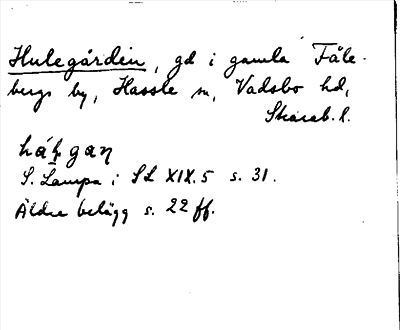 Hulegården, gd i gamla Fåle-
bergs by, Hassle sn, Vadsbo hd,
Skarab. l.
S. Lampa i SL XIX.5 s. 31.
Äldre belägg s. 22 ff.